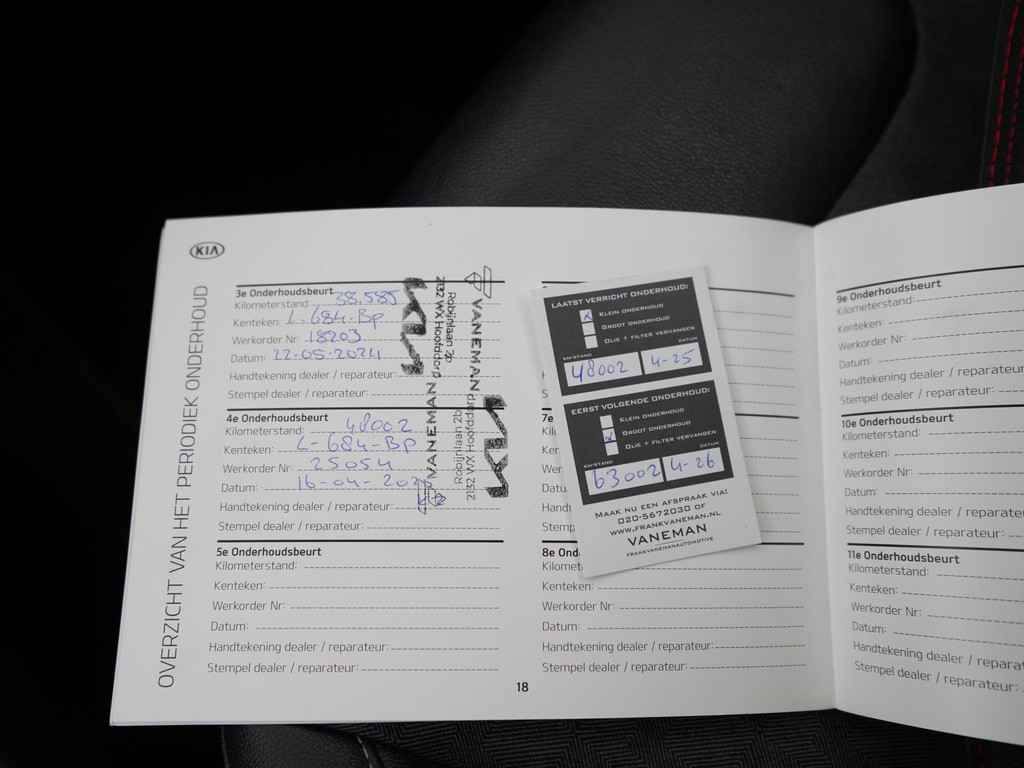 KIA
OVERZICHT VAN HET PERIODIEK ONDERHOUD
3e Onderhoudsbeurt
Kilometerstand: 38.585
Kenteken: L-684-BP
Werkorder Nr: 18203
Datum: 22-05-2024
Handtekening dealer / reparateur:
Stempel dealer / reparateur:
VANEMAN
Robijnlaan 2b
2132 WX Hoofddorp
KIA
4e Onderhoudsbeurt
Kilometerstand: 48002
Kenteken: L-684-BP
Werkorder Nr: 25054
Datum: 16-04-202
Handtekening dealer / reparateur:
Stempel dealer / reparateur:
VANEMAN
Robijnlaan 2b
2132 WX Hoofddorp
KIA
5e Onderhoudsbeurt
Kilometerstand:
Kenteken:
Werkorder Nr:
Datum:
Handtekening dealer / reparateur:
Stempel dealer / reparateur:
LAATST VERRICHT ONDERHOUD:
X KLEIN ONDERHOUD
GROOT ONDERHOUD
OLIE + FILTER VERVANGEN
KM-STAND DATUM
48002 4-25
EERST VOLGENDE ONDERHOUD:
KLEIN ONDERHOUD
X GROOT ONDERHOUD
OLIE + FILTER VERVANGEN
KM-STAND DATUM
63002 4-26
MAAK NU EEN AFSPRAAK VIA:
020-5672030 OF
WWW.FRANKVANEMAN.NL
VANEMAN
FRANKVANEMANAUTOMOTIVE
7e
Kilom
Kente
Werko
Datum
Handt
Stemp
8e Ond
Kilomet
Kenteken:
Werkorder Nr:
Datum:
Handtekening dealer / reparateur:
Stempel dealer / reparateur:
18
9e Onderhoudsbeurt
Kilometerstand:
Kenteken:
Werkorder Nr:
Datum:
Handtekening dealer / reparateur
Stempel dealer / reparateur:
10e Onderhoudsbeurt
Kilometerstand:
Kenteken:
Werkorder Nr:
Datum:
Handtekening dealer / reparateu
Stempel dealer / reparateur:
11e Onderhoudsbeurt
Kilometerstand:
Kenteken:
Werkorder Nr:
Datum:
Handtekening dealer / reparat
Stempel dealer / reparateur: